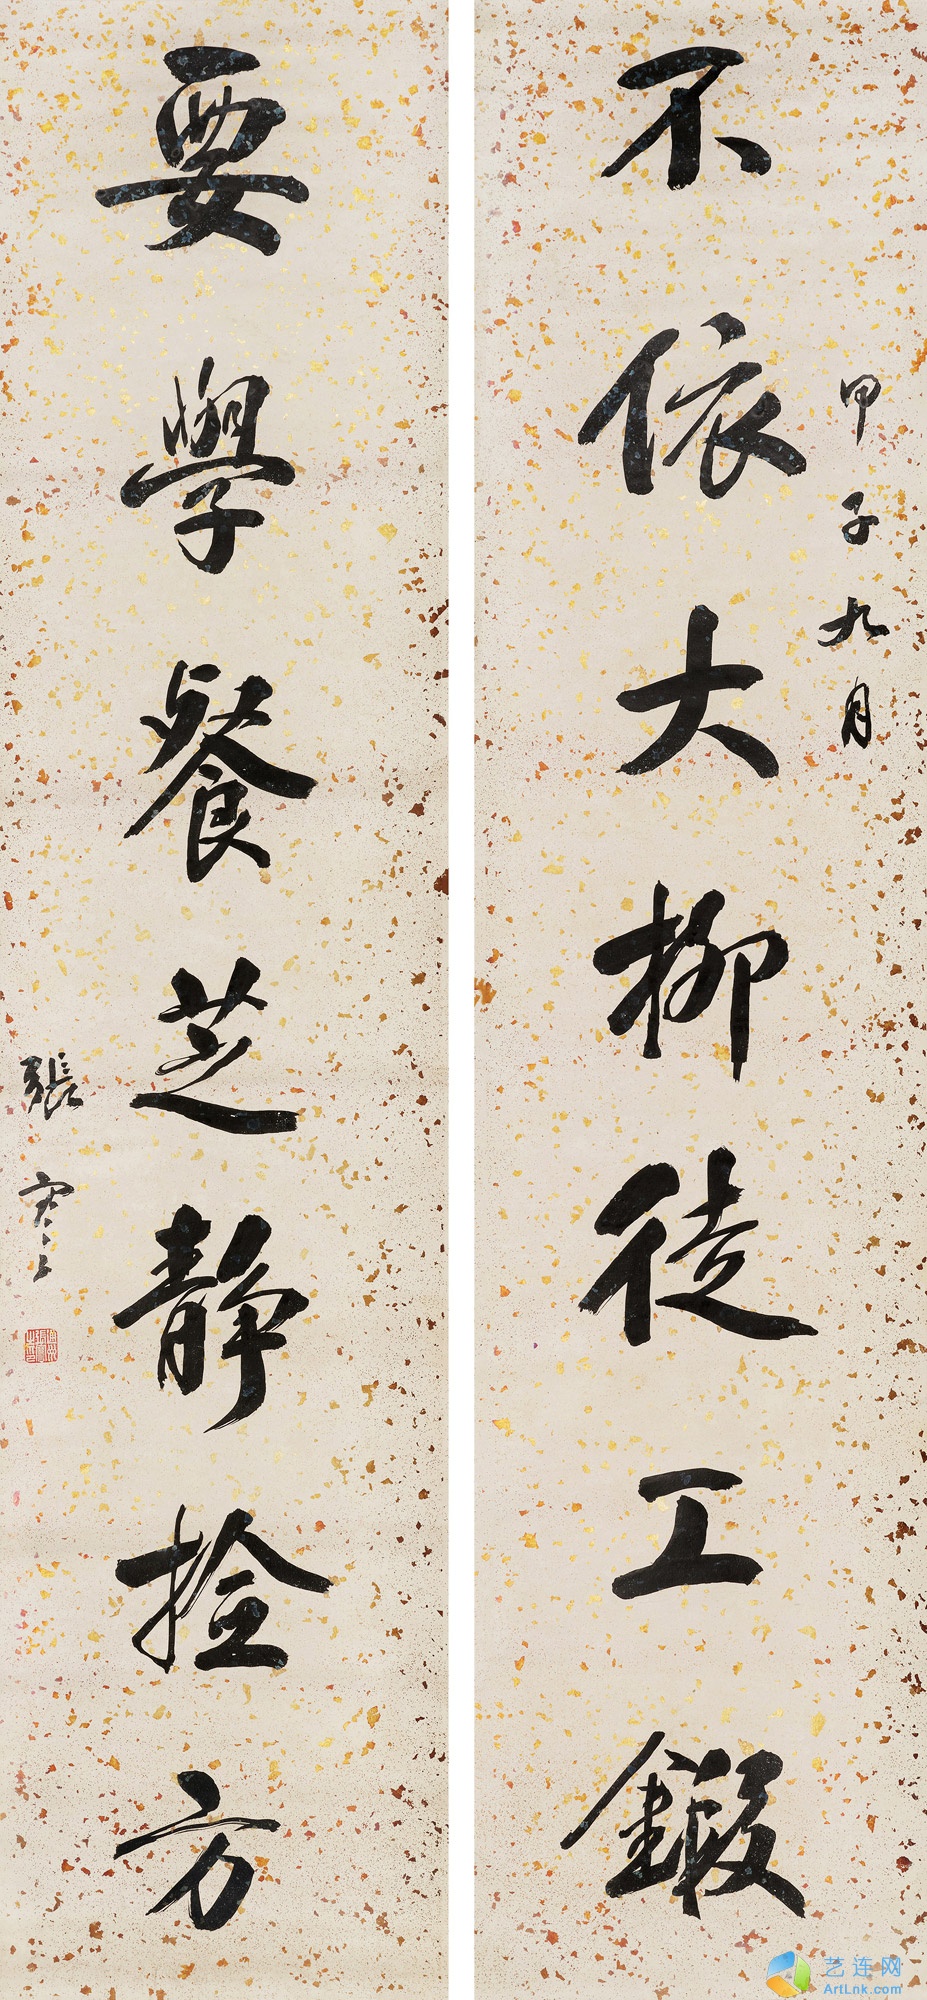 不依大柳徒工鍛
甲子九月
要學餐芝静捡方
張謇
艺连网
ArtLnk.com